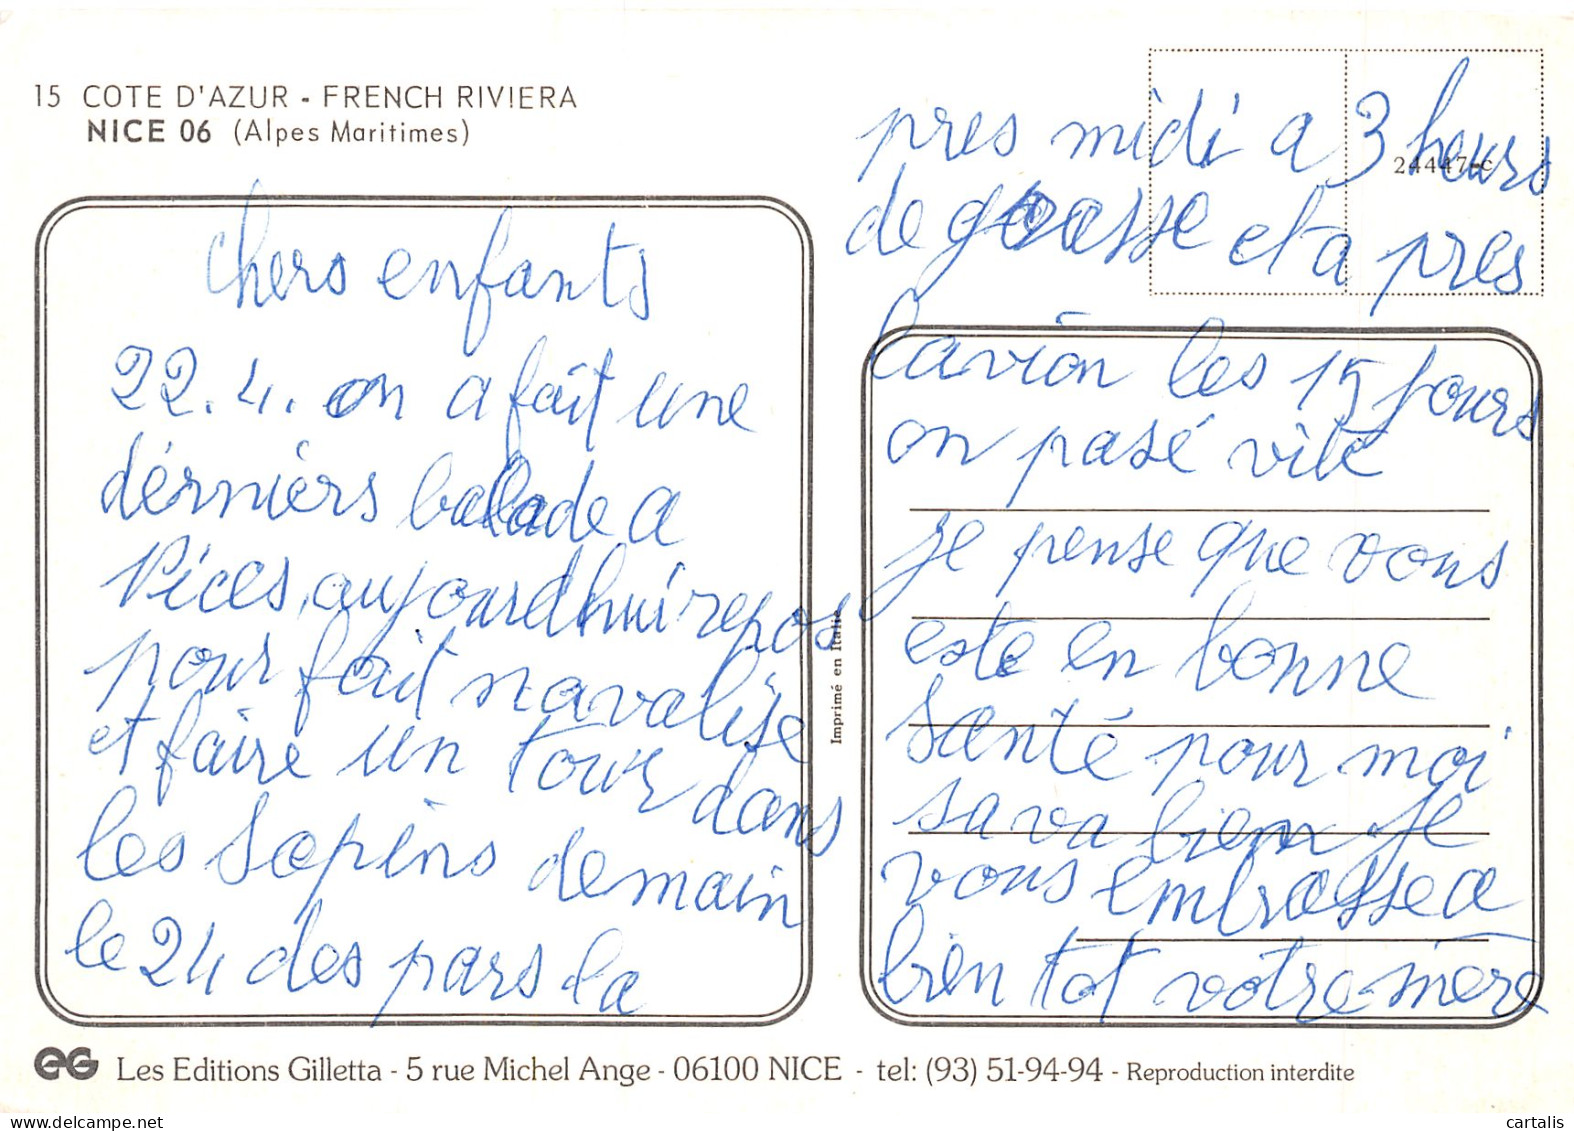 15 COTE D'AZUR - FRENCH RIVIERA
NICE 06 (Alpes Maritimes)
chers enfants
22.4. on a faît une
dérniérs balade a
Nices, aujourdhui repos
pour fait navalise
et faire un tour dans
les Sapins demain
le 24 des pars la
pres midi a 3 heurs
24447-c
de grasse et a pres
l'avion les 15 jours
on pasé vite
je pense que vous
este en bonne
Santé pour moi
sa va bien je
vous embrasse a
bien tot votre mère
Imprimé en Italie
eG Les Editions Gilletta - 5 rue Michel Ange - 06100 NICE - tel: (93) 51-94-94 - Reproduction interdite
www.delcampe.net
cartalis